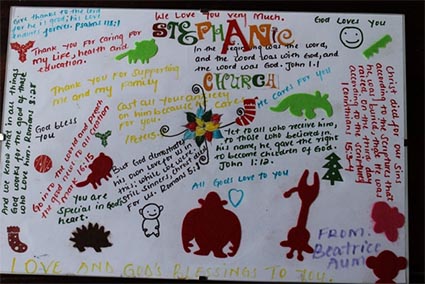 We Love You very much.
STEPHANIE
CHURCH
Give thanks to the Lord
for he is good; his love
endures forever. Psalms 118:1
God Loves You
Thank You for caring for
my life, health and
education.
In the beginning was the word,
and the Word was with God, and
the word was God. John 1:1
Thank You for supporting
me and my family
Cast all your anxiety
on him because he cares
for you.
1Peter 5:7
He cares for You
Christ died for our sins
according to the Scriptures that
he was buried, that he was
raised on the third day
according to the scripture
1 Corinthians 15:3-4
And we know that in all things
God works for the good of those
who love him Romans 8:28
God bless
You
Go into all the world and preach
the good news to all creation
Mark 16:15
Yet to all who receive him,
to those who believed in
his name, he gave the right
to become children of God.
John 1:12.
But God demonstrates
his own love for us in
this; while we were
still sinners, Christ died
for us. Romans 5:8
You are
special in God's
heart.
All Gods Love to you
FROM:
Beatrice
Auma
LOVE AND GOD'S BLESSINGS TO YOU.